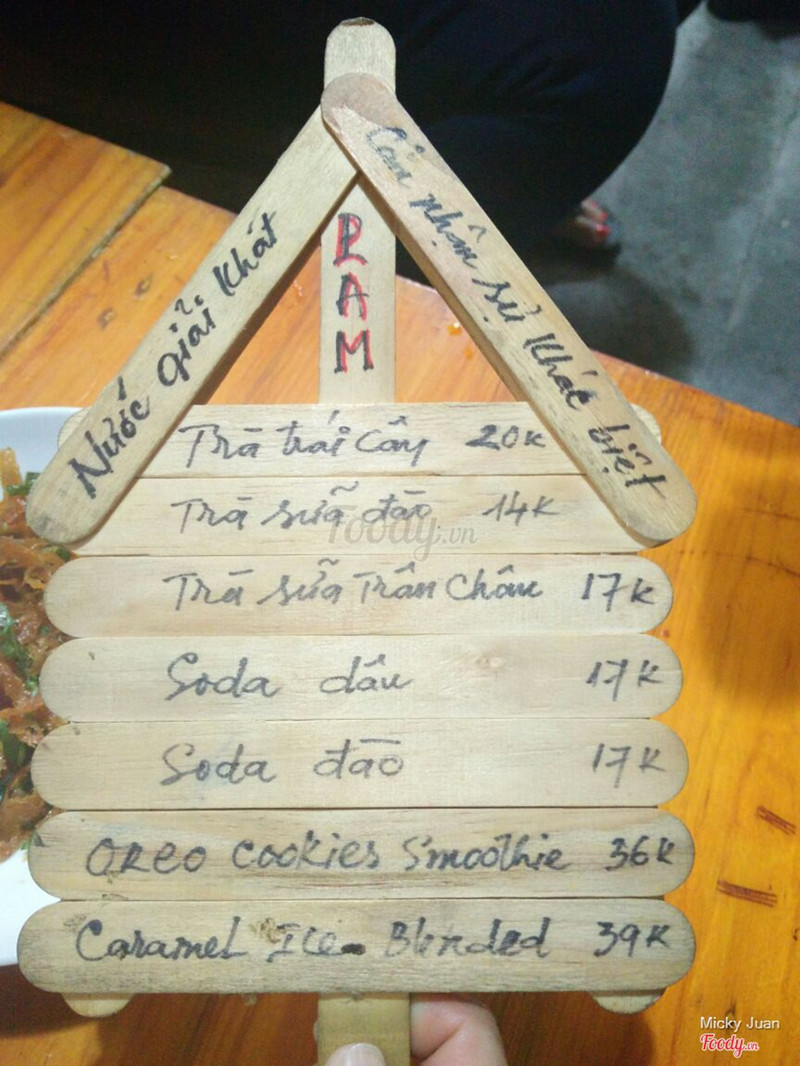 Nước giải khát
PAM
Cảm nhận sự khác biệt
Trà trái cây 20K
Trà sữa đào 14K
Trà sữa Trân Châu 17K
Soda dâu 17K
Soda đào 17K
OREO COOKIES Smoothie 36K
Caramel ICe Blended 39K
Foody.vn
Micky Juan
Foody.vn